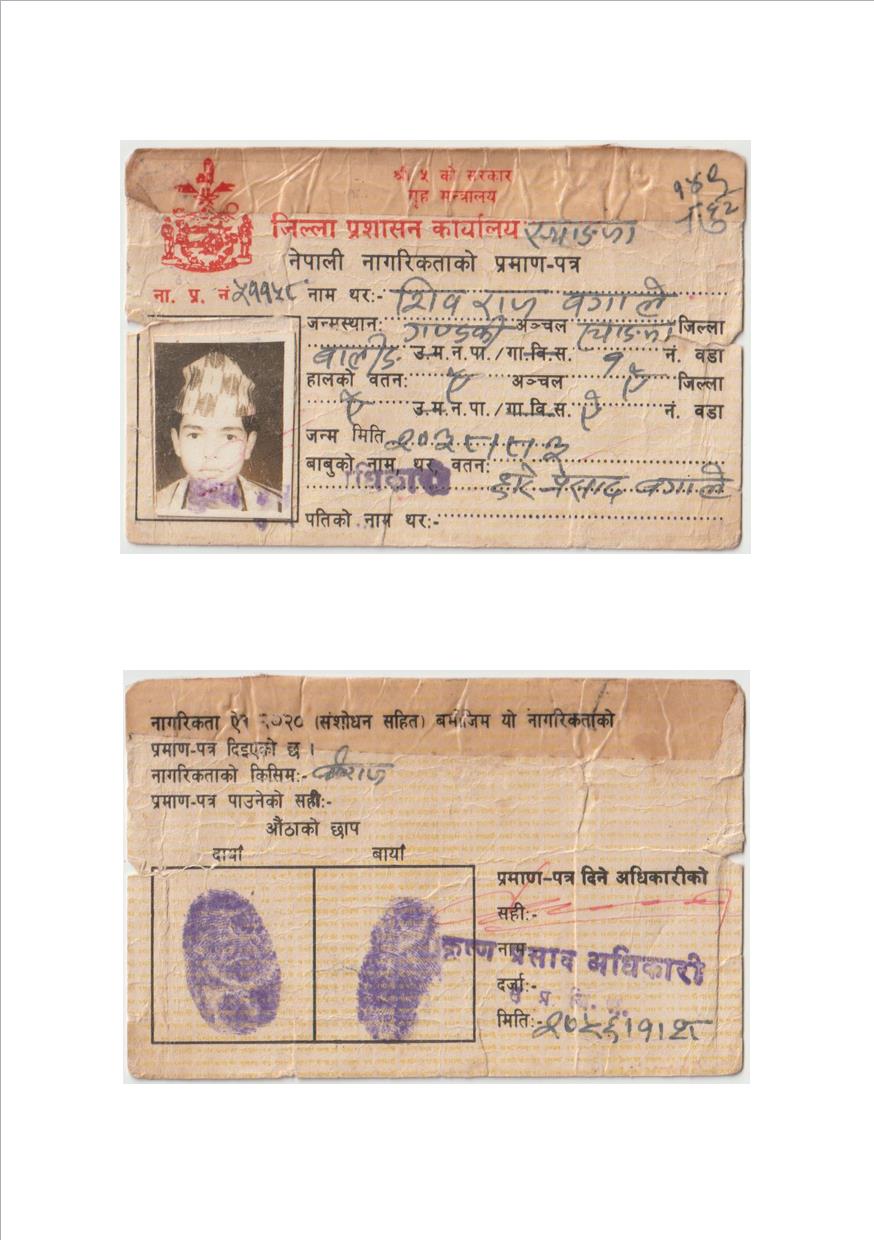 श्री ५ को सरकार
गृह मन्त्रालय
जिल्ला प्रशासन कार्यालय स्याङजा
नेपाली नागरिकताको प्रमाण-पत्र
ना. प्र. नं ५११५८ नाम थर:- शिव राज वगाले
जन्मस्थान: गण्डकी अञ्चल स्याङजा जिल्ला
वालीङ उ.म.न.पा./गा.वि.स. १ नं. वडा
हालको वतन: ऐ अञ्चल ऐ जिल्ला
ऐ उ.म.न.पा./गा.वि.स. ऐ नं. वडा
जन्म मिति
बाबुको नाम, थर, वतन:
प्रसाद वगाले
पतिको नाम थर:-
नागरिकता ऐन २०२० (संशोधन सहित) बमोजिम यो नागरिकताको
प्रमाण-पत्र दिइएको छ ।
नागरिकताको किसिम:- वंशज
प्रमाण-पत्र पाउनेको सही:-
औंठाको छाप
दायाँ बायाँ
प्रमाण-पत्र दिने अधिकारीको
सही:-
नाम प्रसाद अधिकारी
दर्जा:-
मिति:-